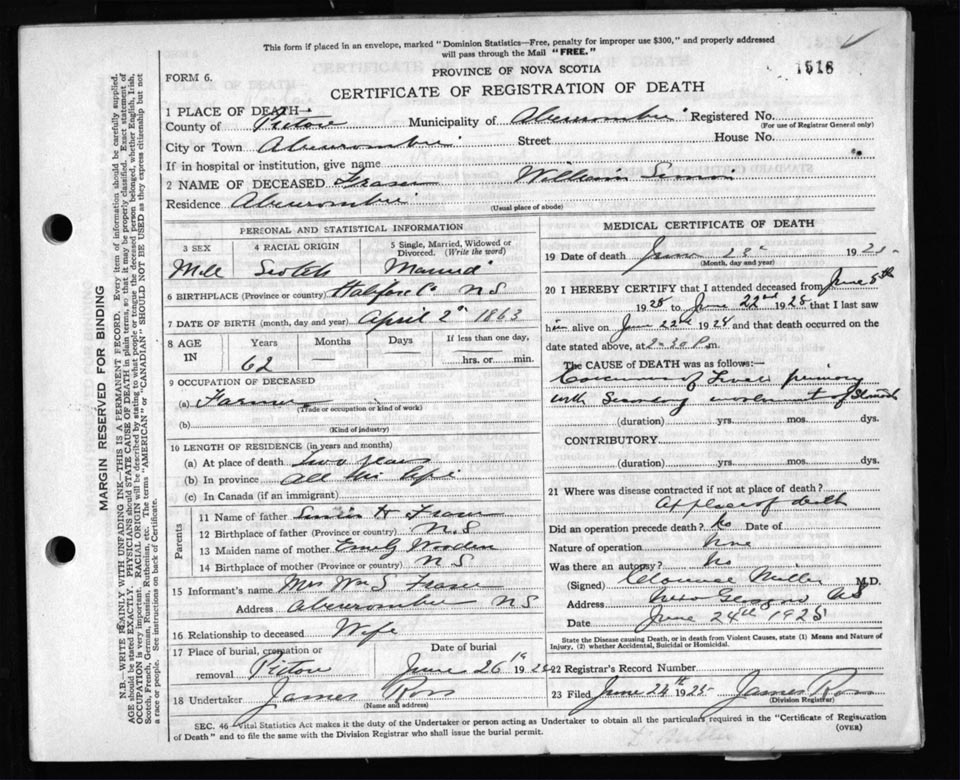 This form if placed in an envelope, marked "Dominion Statistics—Free, penalty for improper use $300," and properly addressed
will pass through the Mail "FREE."
1516
FORM 6.
PROVINCE OF NOVA SCOTIA
CERTIFICATE OF REGISTRATION OF DEATH
1 PLACE OF DEATH—
County of Pictou Municipality of Abercrombie Registered No.
(For use of Registrar General only)
City or Town Abercrombie Street House No.
If in hospital or institution, give name
2 NAME OF DECEASED Fraser William Simon
Residence Abercrombie
(Usual place of abode)
PERSONAL AND STATISTICAL INFORMATION
3 SEX 4 RACIAL ORIGIN 5 Single, Married, Widowed or
Divorced. (Write the word)
Male Scotch Married
6 BIRTHPLACE (Province or country) Halifax Co NS
7 DATE OF BIRTH (month, day and year) April 2 1863
8 AGE IN Years Months Days If less than one day,
62 — hrs. or min.
9 OCCUPATION OF DECEASED
(a) Farmer
(Trade or occupation or kind of work)
(b)
(Kind of industry)
10 LENGTH OF RESIDENCE (in years and months)
(a) At place of death Two years
(b) In province All his life
(c) In Canada (if an immigrant)
Parents
11 Name of father H Fraser
12 Birthplace of father (Province or country) N.S
13 Maiden name of mother Emily Wooden
14 Birthplace of mother (Province or country) N S
15 Informant's name Mrs Wm S Fraser
Address Abercrombie NS
16 Relationship to deceased Wife
17 Place of burial, cremation or Date of burial
removal Pictou June 26th 1925
18 Undertaker James Ross
(Name and address)
MEDICAL CERTIFICATE OF DEATH
19 Date of death June 192
(Month, day and year)
20 I HEREBY CERTIFY that I attended deceased from June 8th
1925 to June 22nd 1925 that I last saw
him alive on June 22nd 1925 and that death occurred on
date stated above, at 2-30 P.m.
The CAUSE OF DEATH was as follows:—
Carcinoma of Liver primary
with Secondary involvement of Stomach
(duration) yrs. mos. dys.
CONTRIBUTORY
(duration) yrs. mos. dys.
21 Where was disease contracted if not at place of death?
At place of death
Did an operation precede death? No Date of
Nature of operation None
Was there an autopsy? No
(Signed) Clarence Miller M.D.
Address New Glasgow NS
Date June 24th 1925
State the Disease causing Death, or in death from Violent Causes, state (1) Means and Nature of
Injury, (2) whether Accidental, Suicidal or Homicidal.
22 Registrar's Record Number
23 Filed June 24th 1925 James Ross
(Division Registrar)
SEC. 46 Vital Statistics Act makes it the duty of the Undertaker or person acting as Undertaker to obtain all the particulars required in the "Certificate of Registration
of Death" and to file the same with the Division Registrar who shall issue the burial permit.
(OVER)
MARGIN RESERVED FOR BINDING
N.B.—WRITE PLAINLY WITH UNFADING INK—THIS IS A PERMANENT RECORD. Every item of information should be carefully supplied.
AGE should be stated EXACTLY. PHYSICIANS should STATE CAUSE OF DEATH in plain terms, so that it may be properly classified. Exact statement of
OCCUPATION is very important. RACIAL ORIGIN will be described by stating to what people or tongue the deceased person belonged, whether English, Irish,
Scotch, French, German, Russian, Ruthenian, etc. The terms "AMERICAN" or "CANADIAN" SHOULD NOT BE USED as they express citizenship but not
a race or people. See instructions on back of Certificate.